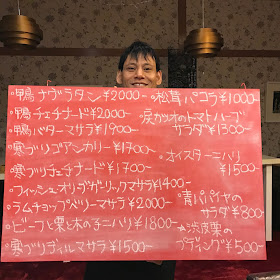 ・鴨ナヴラタン¥2000-
・鴨チェチナード¥2000-
・鴨バターマサラ¥1900-
・寒ブリゴアンカリー¥1700-
・寒ブリチェチナード¥1700-
・フィッシュオリーブガーリックマサラ¥1400-
・ラムチョップペリーマサラ¥2000-
・ビーフと栗と木の子ニハリ¥1800-
・寒ブリティルマサラ¥1500-
・松茸パコラ¥1000-
・戻ガツオのトマトハーブ
サラダ¥1300-
・オイスターニハリ
¥1500-
・青パパイヤの
サラダ¥800-
・渋皮栗の
プディング¥500-